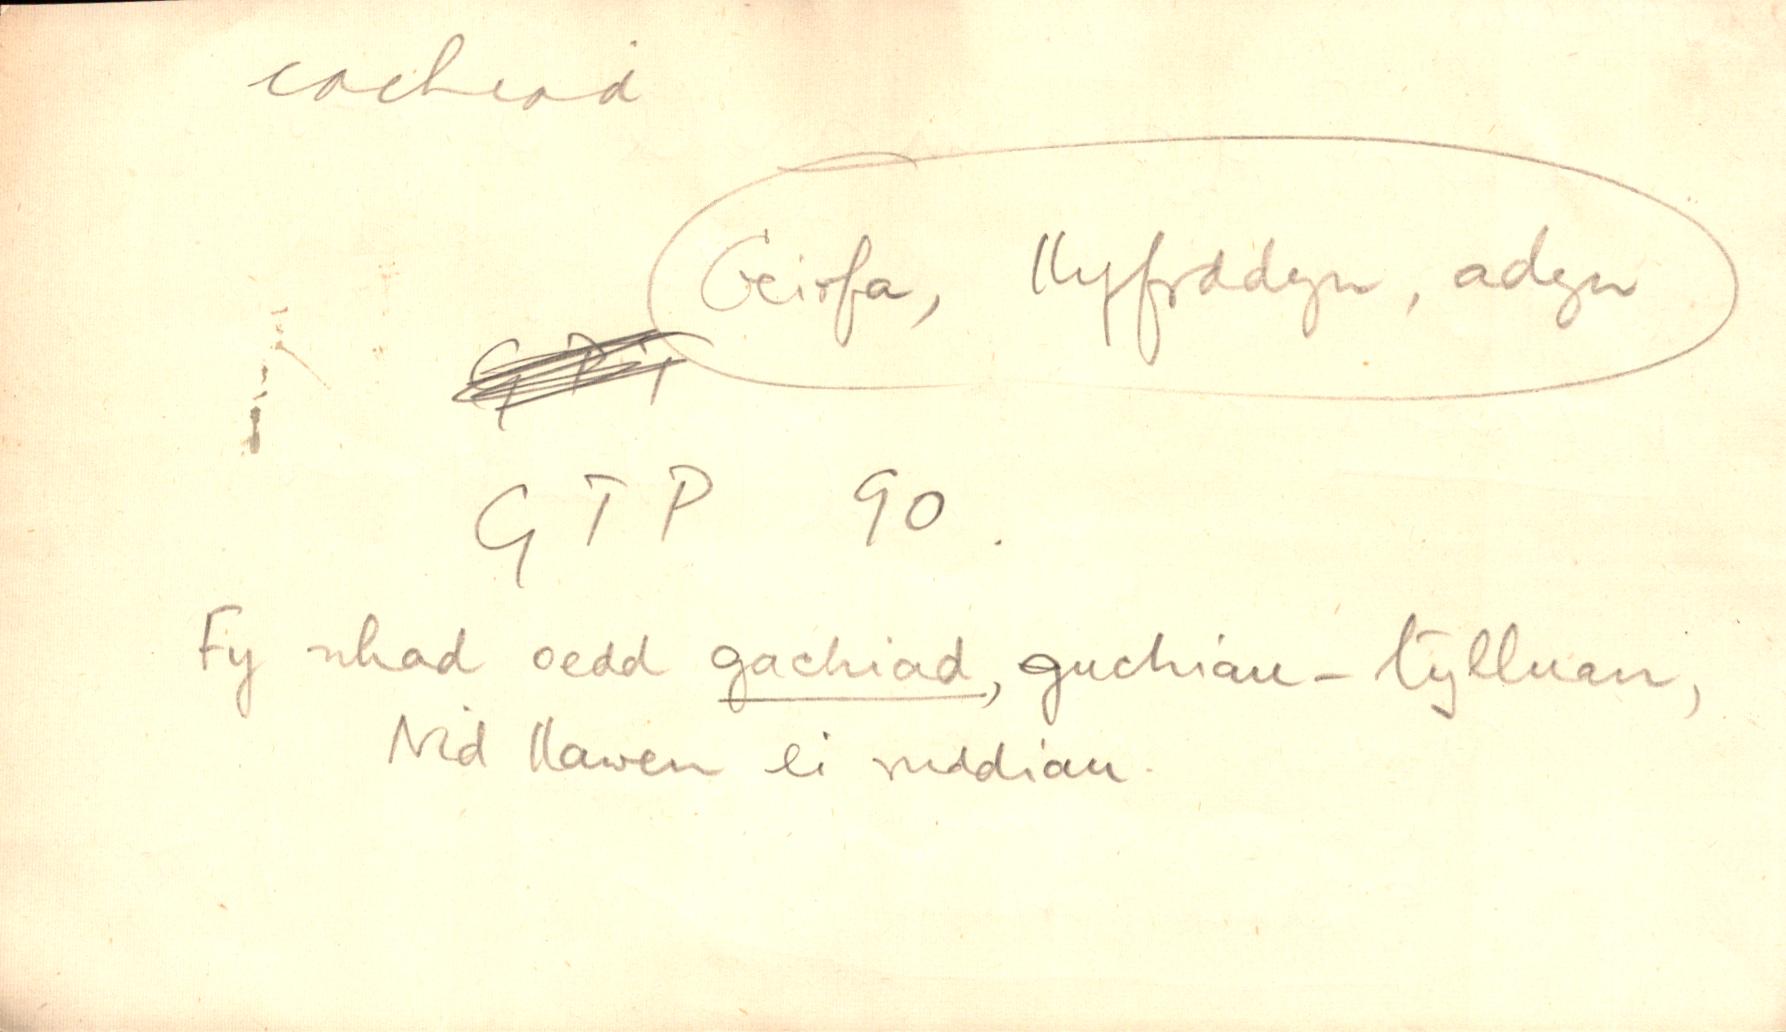 cachiad
Geirfa, llyfrddyn, adyn
GTP 90.
Fy nhad oedd gachiad, guchiau – tylluan,
Nid llawen ei ruddiau.